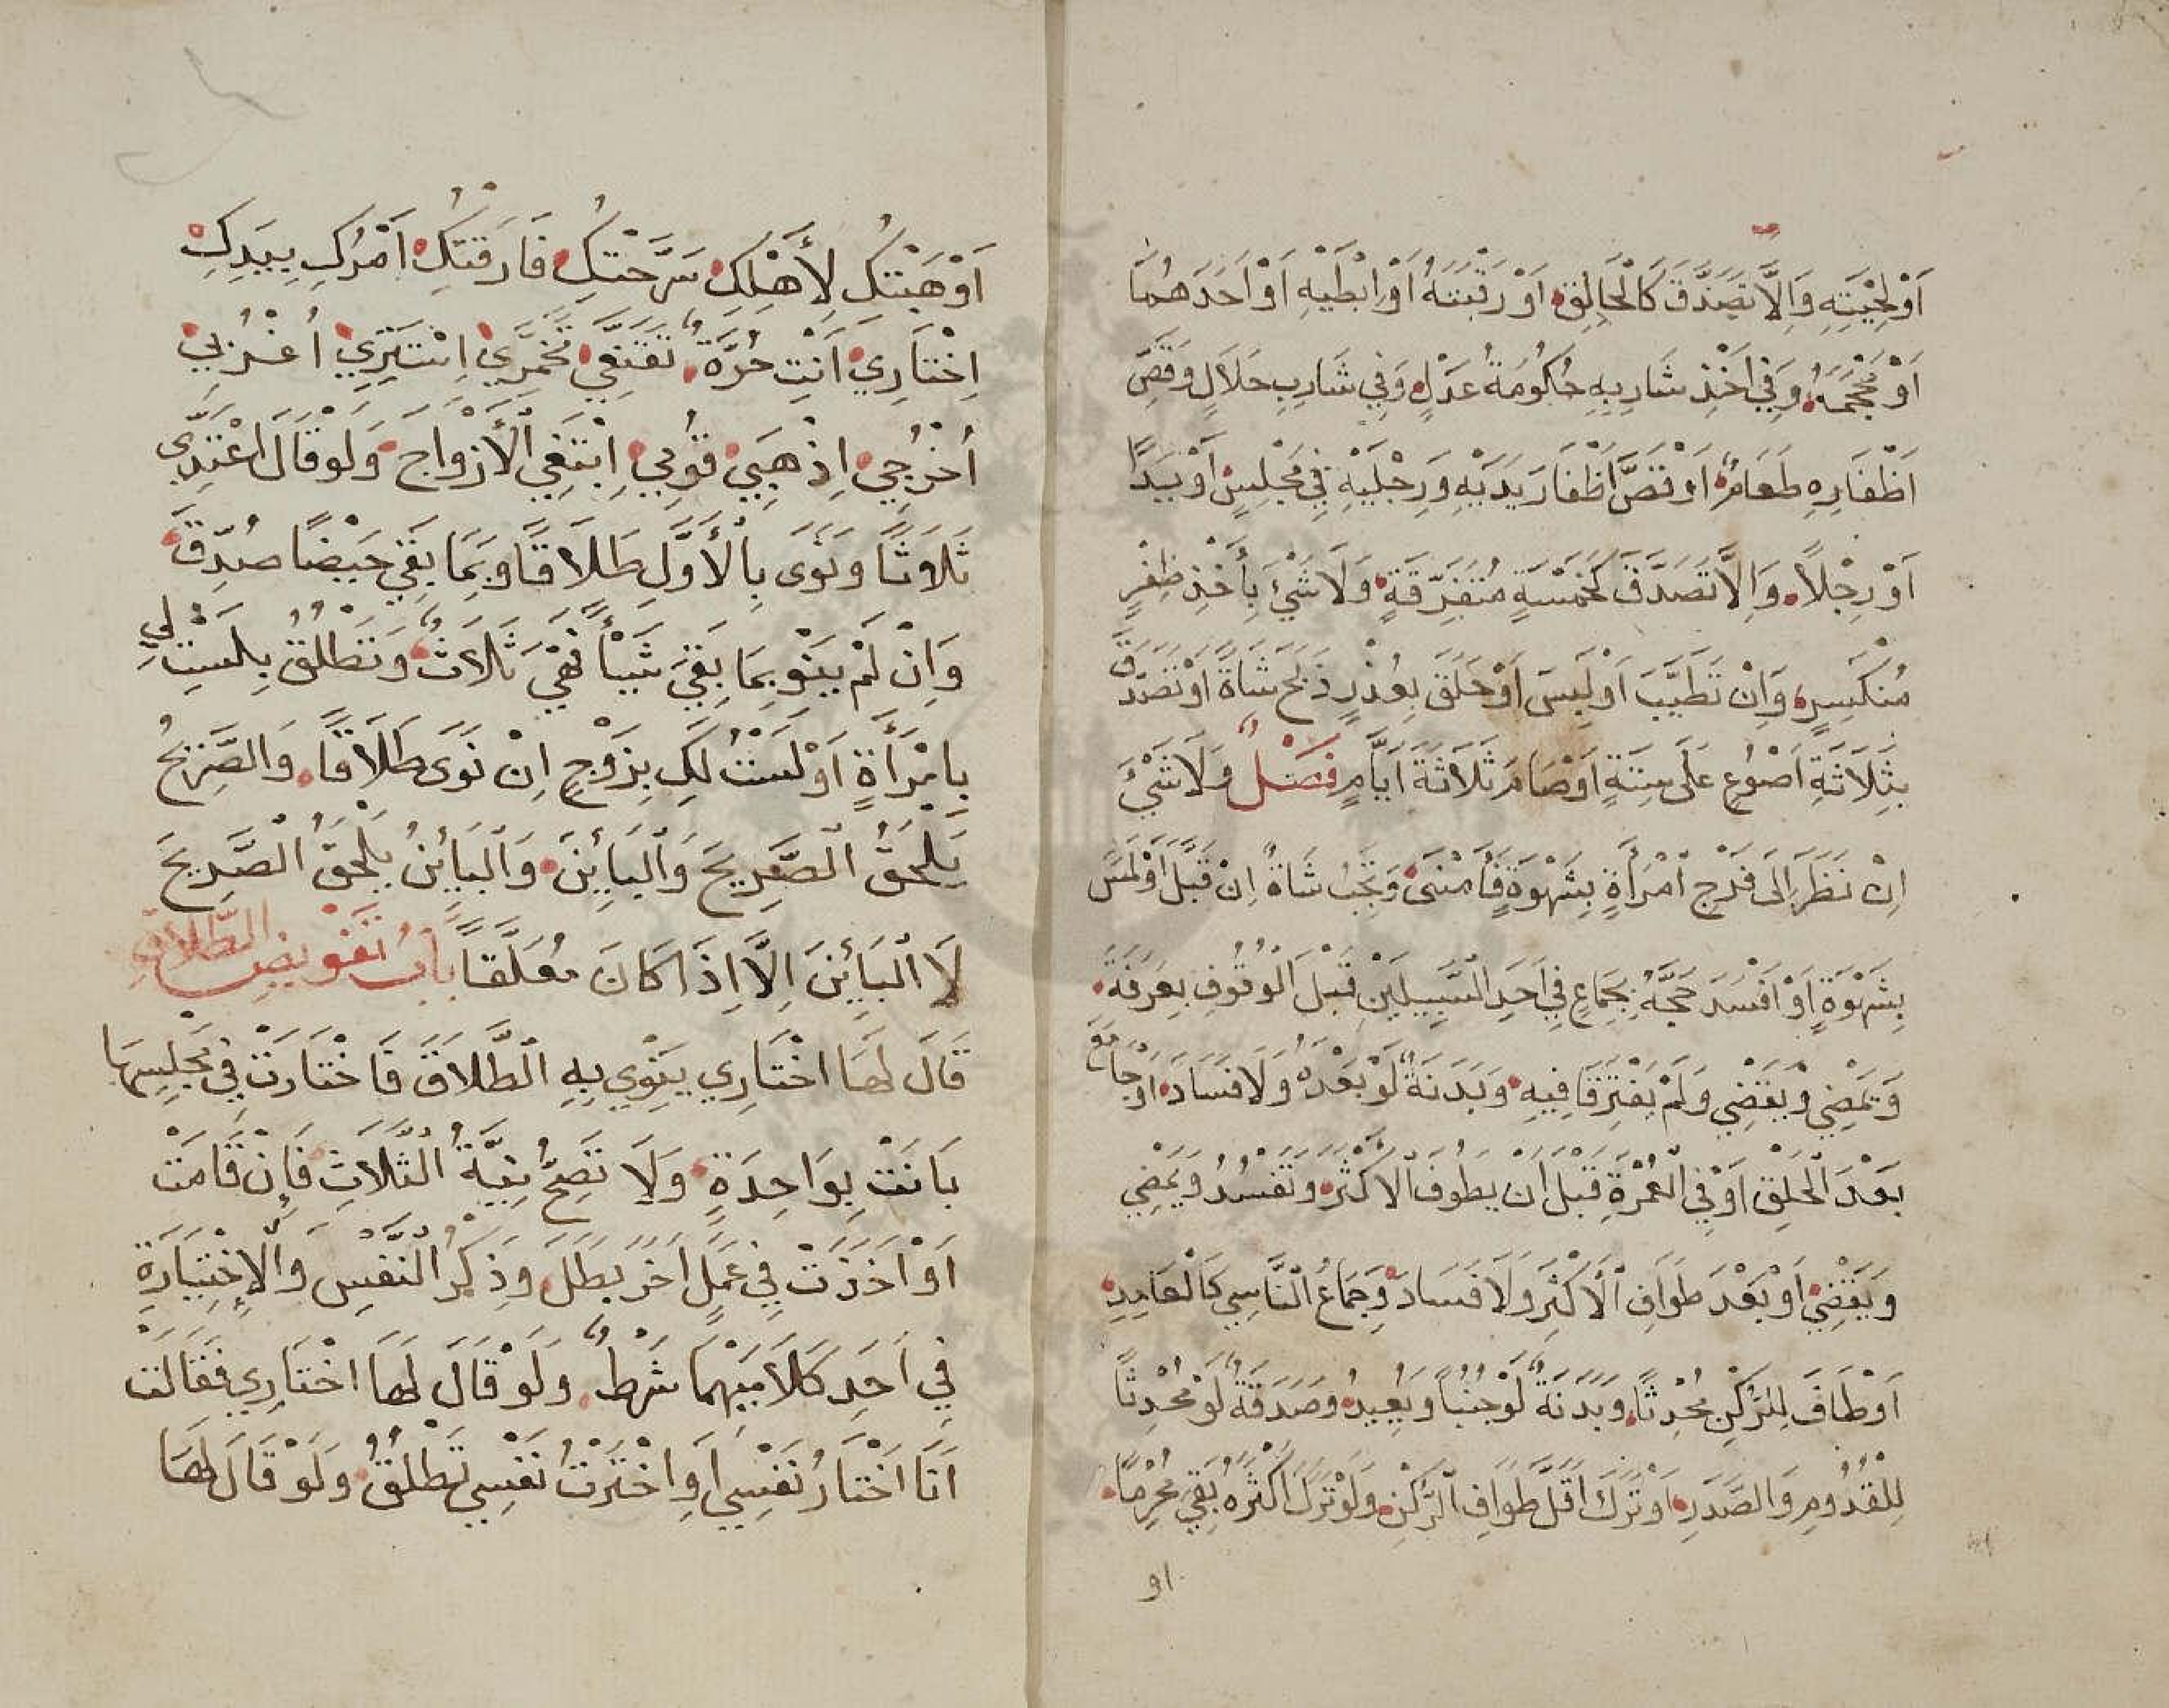 اَوْ لِحْيَتِهِ وَاِلَّا تَصَدَّقَ كَالْحَالِقِ اَوْ رَقَبَتَهُ اَوْ اِبْطَيْهِ اَوْ اَحَدَهُمَا
اَوْ مَحْجَمَهُ وَفِي اَخْذِ شَارِبِهِ حُكُومَةُ عَدْلٍ وَفِي شَارِبِ حَلَالٍ وَقَصِّ
اَظْفَارِهِ طَعَامٌ اَوْ قَصَّ اَظْفَارَ يَدَيْهِ وَرِجْلَيْهِ فِي مَجْلِسٍ اَوْ يَدًا
اَوْ رِجْلاً وَاِلَّا تَصَدَّقَ كَخَمْسَةٍ مُتَفَرِّقَةٍ وَلَا شَيْءَ بِأَخْذِ ظُفْرٍ
مُنْكَسِرٍ وَاِنْ تَطَيَّبَ اَوْ لَبِسَ اَوْ حَلَقَ بِعُذْرٍ ذَبَحَ شَاةً اَوْ تَصَدَّقَ
بِثَلَاثَةِ اَصْوُعٍ عَلَى سِتَّةٍ اَوْ صَامَ ثَلَاثَةَ اَيَّامٍ فَصْلٌ وَلَا شَيْءَ
اِنْ نَظَرَ اِلَى فَرْجِ امْرَأَةٍ بِشَهْوَةٍ فَأَمْنَى وَتَجِبُ شَاةٌ اِنْ قَبَّلَ اَوْ لَمَسَ
بِشَهْوَةٍ اَوْ اَفْسَدَ حَجَّهُ بِجِمَاعٍ فِي اَحَدِ السَّبِيلَيْنِ قَبْلَ الْوُقُوفِ بِعَرَفَةَ
وَيَمْضِي وَيَقْضِي وَلَمْ يَفْتَرِقَا فِيهِ وَبَدَنَةٌ لَوْ بَعْدَهُ وَلَا فَسَادَ اَوْ جَامَعَ
بَعْدَ الْحَلْقِ اَوْ فِي الْعُمْرَةِ قَبْلَ اَنْ يَطُوفَ الْاَكْثَرَ وَتَفْسُدُ وَيَمْضِي
وَيَقْضِي اَوْ بَعْدَ طَوَافِ الْأَكْثَرِ وَلَا فَسَادَ وَجِمَاعُ النَّاسِي كَالْعَامِدِ
اَوْ طَافَ لِلرُّكْنِ مُحْدِثًا وَبَدَنَةٌ لَوْ جُنُبًا وَيُعِيدُ وَصَدَقَةٌ لَوْ مُحْدِثًا
لِلْقُدُومِ وَالصَّدَرِ اَوْ تَرَكَ اَقَلَّ طَوَافِ الرُّكْنِ وَلَوْ تَرَكَ اَكْثَرَهُ بَقِيَ مُحْرِمًا
او
اَوْ هَبْتُكِ لِأَهْلِكِ سَرَّحْتُكِ فَارَقْتُكِ اَمْرُكِ بِيَدِكِ
اِخْتَارِي اَنْتِ حُرَّةٌ تَقَنَّعِي تَخَمَّرِي اِسْتَتِرِي اُغْرُبِي
اُخْرُجِي اِذْهَبِي قُومِي اِبْتَغِي الْأَزْوَاجَ وَلَوْ قَالَ اعْتَدِّي
ثَلَاثًا وَنَوَى بِالْأَوَّلِ طَلَاقًا وَبِمَا بَقِيَ حَيْضًا صُدِّقَ
وَاِنْ لَمْ يَنْوِ بِمَا بَقِيَ شَيْأً فَهِيَ ثَلَاثٌ وَتَطْلُقُ بِلَسْتِ لِي
بِامْرَأَةٍ اَوْ لَسْتُ لَكِ بِزَوْجٍ اِنْ نَوَى طَلَاقًا وَالصَّرِيحُ
يَلْحَقُ الصَّرِيحَ وَالْبَائِنَ وَالْبَائِنُ يَلْحَقُ الصَّرِيحَ
لَا الْبَائِنَ اِلَّا اِذَا كَانَ مُعَلَّقًا بَابُ تَفْوِيضِ الطَّلَاقِ
قَالَ لَهَا اخْتَارِي يَنْوِي بِهِ الطَّلَاقَ فَاخْتَارَتْ فِي مَجْلِسِهَا
بَانَتْ بِوَاحِدَةٍ وَلَا تَصِحُّ نِيَّةُ الثَّلَاثِ فَاِنْ قَامَتْ
اَوْ اَخَذَتْ فِي عَمَلٍ اَخَرَ بَطَلَ وَذِكْرُ النَّفْسِ وَالْاِخْتِيَارَةِ
فِي اَحَدِ كَلَامَيْهِمَا شَرْطٌ وَلَوْ قَالَ لَهَا اخْتَارِي فَقَالَتْ
اَنَا اَخْتَارُ نَفْسِي اَوِ اخْتَرْتُ نَفْسِي تَطْلُقُ وَلَوْ قَالَ لَهَا